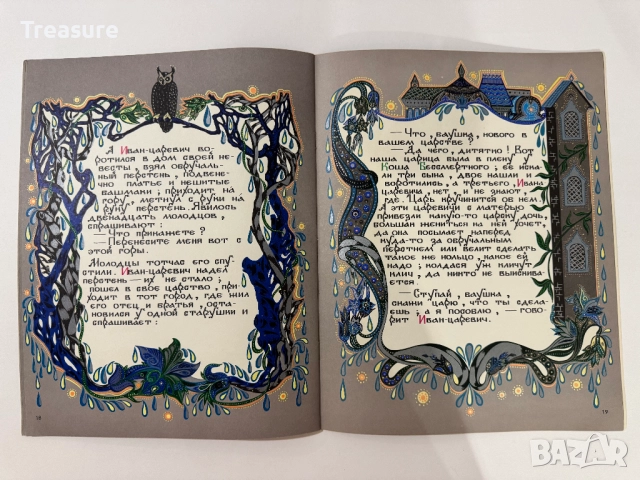 Treasure
А Иван-царевич во-
ротился в дом своей не-
весты, взял обручаль-
ный перстень, подвене-
чно платье и нешитые
башмаки; приходит на
гору, метнул с руки на
руку перстень. Явилось
двенадцать молодцов,
спрашивают:
— Что прикажете?
— Перенесите меня вот с
этой горы.
Молодцы тотчас его спу-
стили. Иван-царевич надел
перстень — их не стало;
пошел в свое царство, при-
ходит в тот город, где жил
его отец и братья, оста-
новился у одной старушки и
спрашивает:
18
— Что, баушка, нового в
вашем царстве?
— Да чего, дитятко! Вот
наша царица была в плену у
Коша Бессмертного; ее иска-
ли три сына, двое нашли и
воротились, а третьего, Ивана-
царевича, нет, и не знают,
где. Царь кручинится об нем.
А эти царевичи с матерью
привезли какую-то царску дочь,
большак жениться на ней хочет,
да она посылает наперед
куда-то за обручальным
перстнем или велит сделать
такое же кольцо, какое ей
надо; колдася уж кличут
клич, да никто не выиски-
вается.
— Ступай, баушка,
скажи царю, что ты сдела-
ешь; а я пособлю, — гово-
рит Иван-царевич.
19
bazar